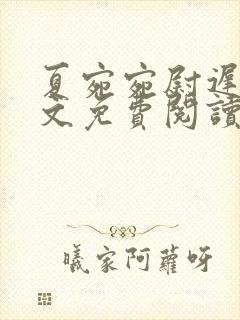 夏宛宛尉遲
文免費閱讀
曦家阿蘿呀